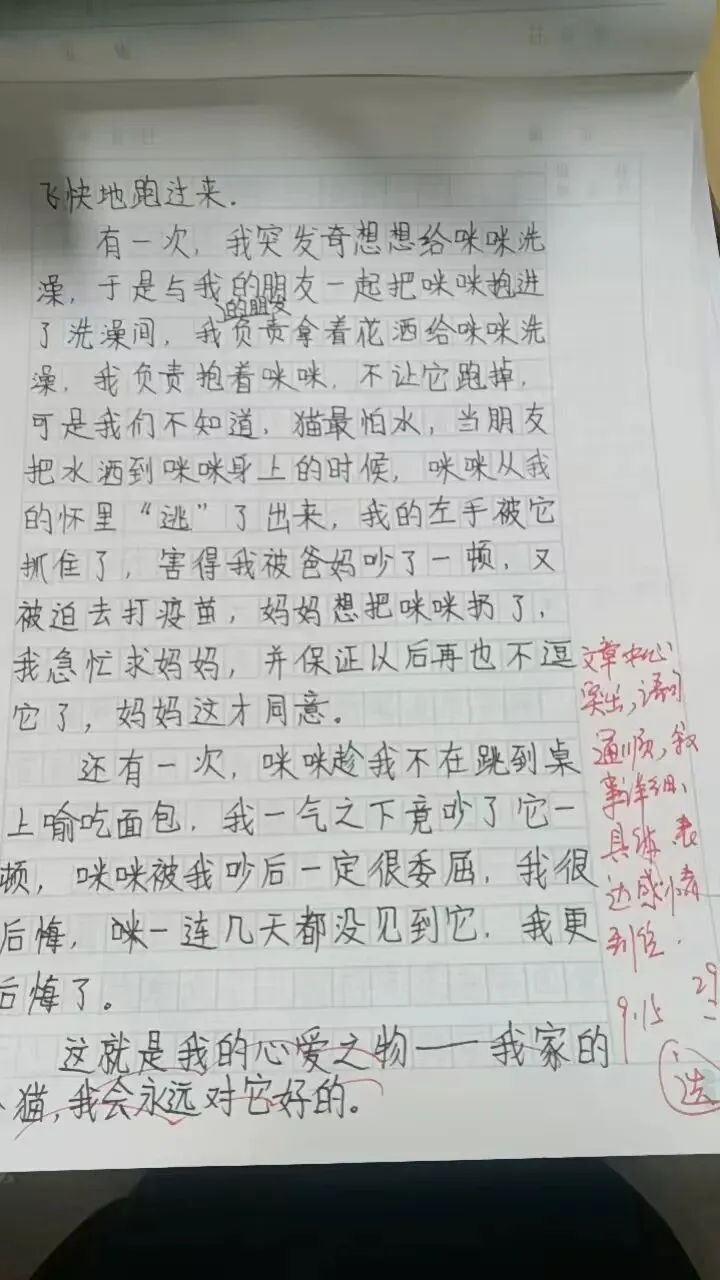 飞快地跑过来.
有一次,我突发奇想想给咪咪洗
澡,于是与我的朋友一起把咪咪抱进
的朋友
了洗澡间,我负责拿着花洒给咪咪洗
澡,我负责抱着咪咪,不让它跑掉,
可是我们不知道,猫最怕水,当朋友
把水洒到咪咪身上的时候,咪咪从我
的怀里“逃”了出来,我的左手被它
抓住了,害得我被爸妈吵了一顿,又
被迫去打疫苗,妈妈想把咪咪扔了,
我急忙求妈妈,并保证以后再也不逗
它了,妈妈这才同意。
还有一次,咪咪趁我不在跳到桌
上喻吃面包,我一气之下竟吵了它一
顿,咪咪被我吵后一定很委屈,我很
后悔,咪一连几天都没见到它,我更
后悔了。
这就是我的心爱之物——我家的
猫,我会永远对它好的。
文章中心
突出,语句
通顺,叙
事详细、
具体,表
达感情
到位.
9.15
29
选